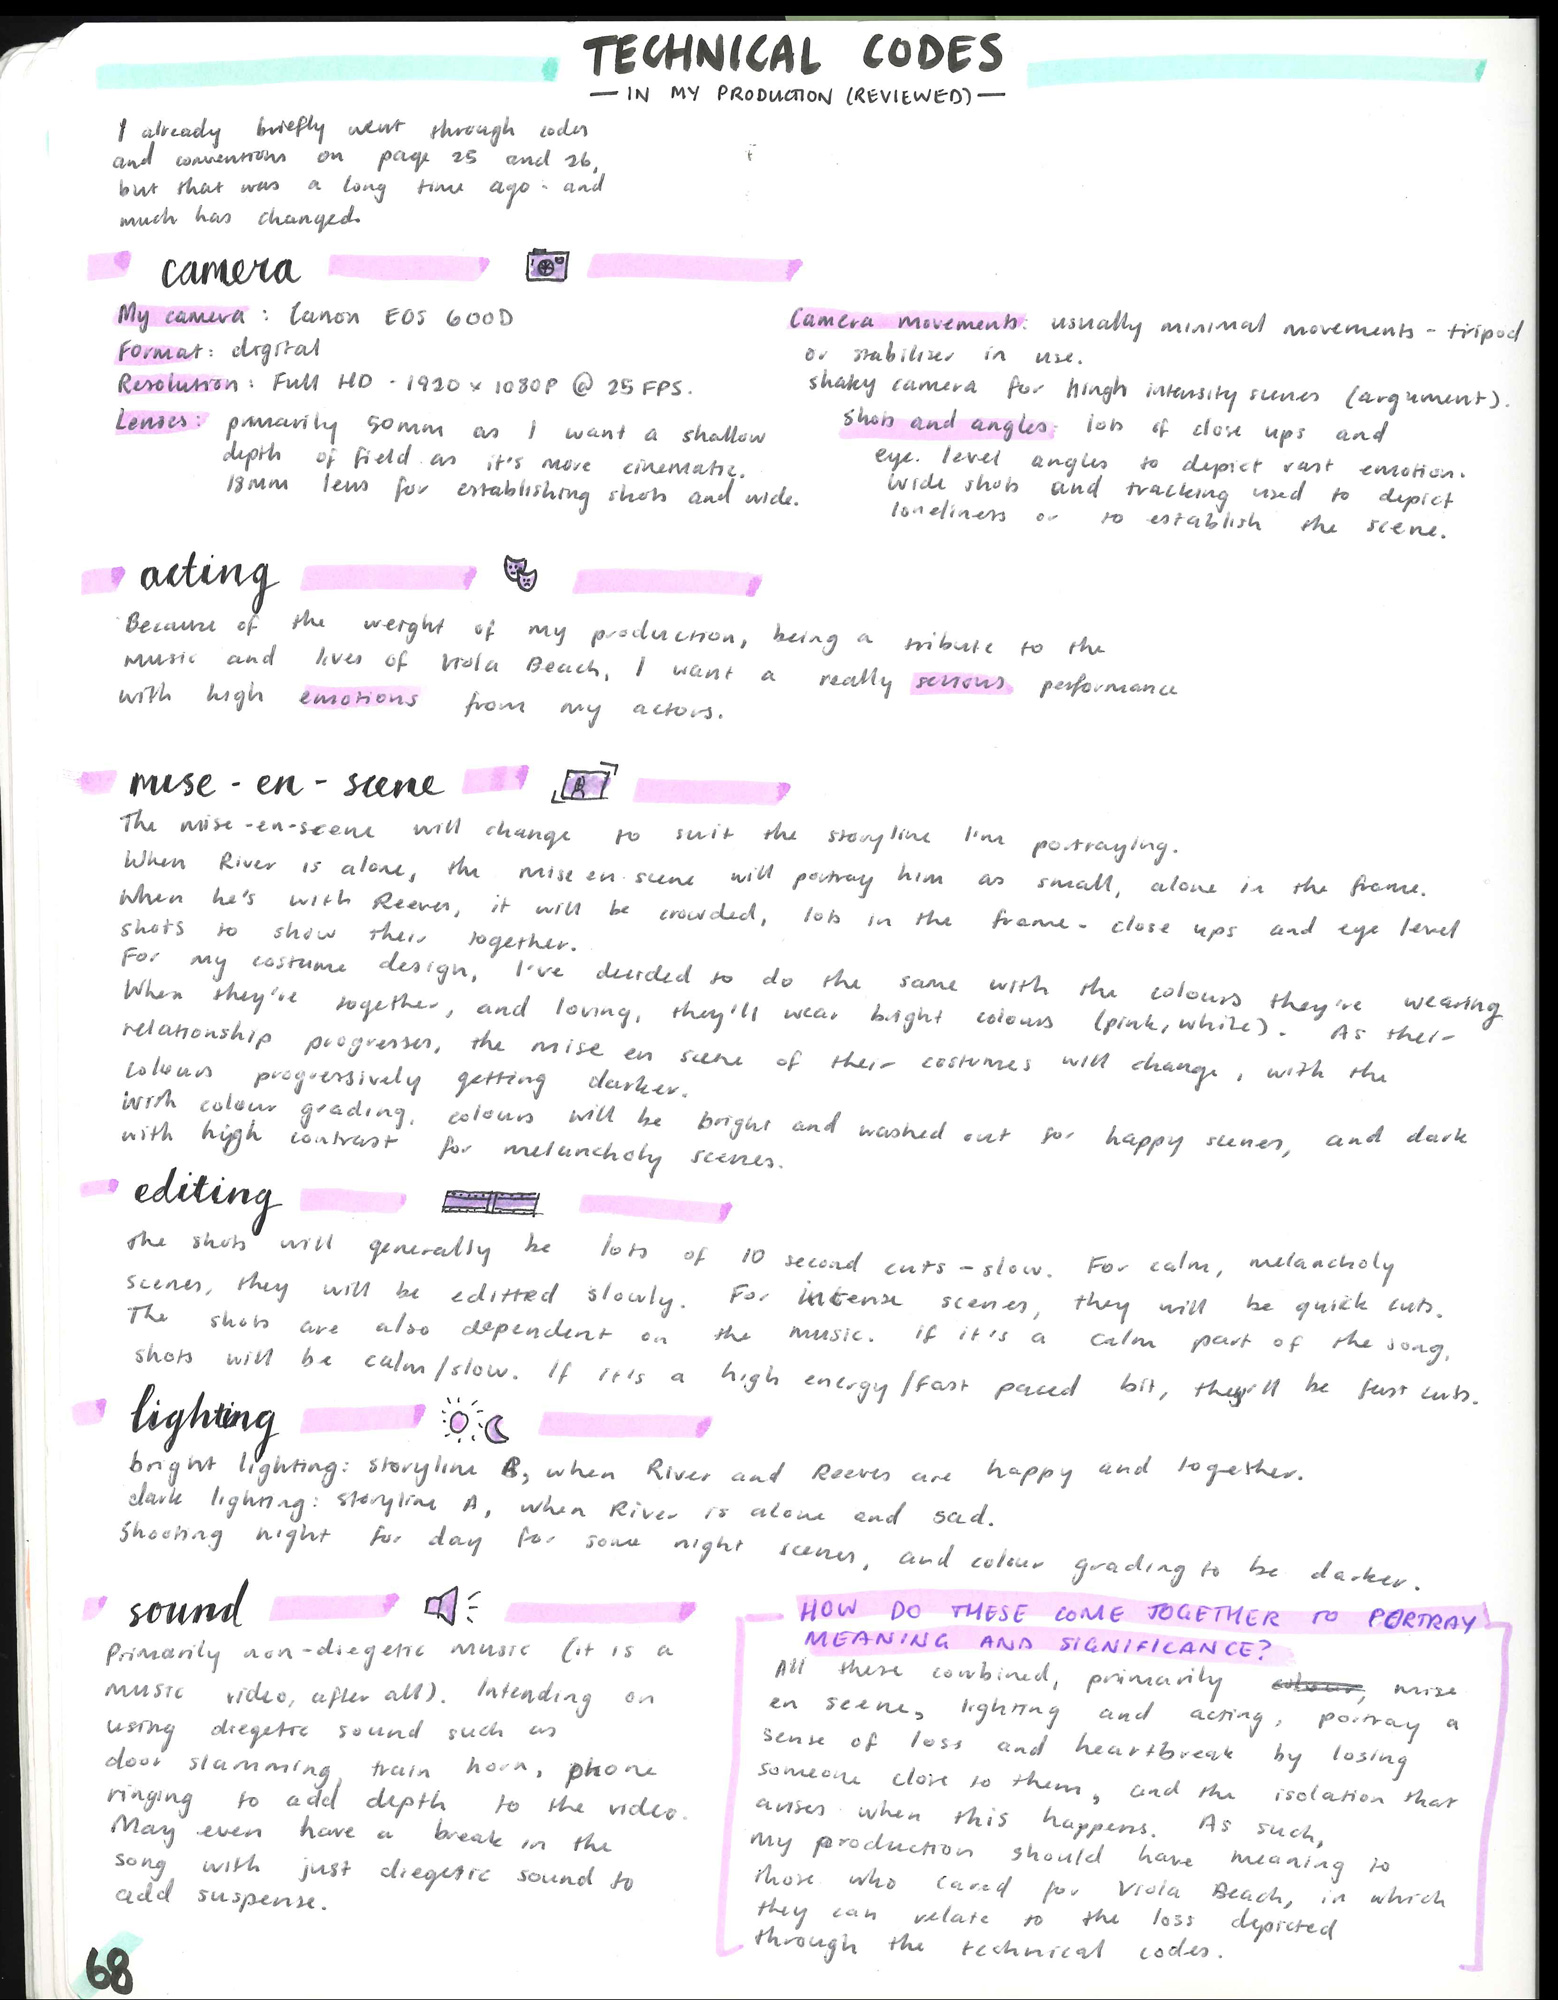 TECHNICAL CODES
— IN MY PRODUCTION (REVIEWED) —
I already briefly went through codes
and conventions on page 25 and 26,
but that was a long time ago - and
much has changed.
camera
My camera: Canon EOS 600D
Format: digital
Resolution: Full HD - 1920 x 1080P @ 25 FPS.
Lenses: primarily 50mm as I want a shallow
depth of field as it's more cinematic.
18mm lens for establishing shots and wide.
Camera movements: usually minimal movements - tripod
or stabiliser in use.
shaky camera for hingh intensity scenes (argument).
Shots and angles: lots of close ups and
eye level angles to depict vast emotion.
Wide shots and tracking used to depict
loneliness or to establish the scene.
acting
Because of the weight of my production, being a tribute to the
music and lives of Viola Beach, I want a really serious performance
with high emotions from my actors.
mise-en-scene
The mise-en-scene will change to suit the storyline I'm portraying.
When River is alone, the mise en scene will portray him as small, alone in the frame.
When he's with Reeves, it will be crowded, lots in the frame - close ups and eye level
shots to show their together.
For my costume design, I've decided to do the same with the colours they're wearing
When they're together, and loving, they'll wear bright colours (pink, white). As their
relationship progresses, the mise en scene of their costumes will change, with the
colours progressively getting darker.
With colour grading, colours will be bright and washed out for happy scenes, and dark
with high contrast for melancholy scenes.
editing
the shots will generally be lots of 10 second cuts - slow. For calm, melancholy
scenes, they will be editted slowly. For intense scenes, they will be quick cuts.
The shots are also dependent on the music. If it's a calm part of the song,
shots will be calm/slow. If it's a high energy/fast paced bit, they'll be fast cuts.
lighting
bright lighting: storyline B, when River and Reeves are happy and together.
dark lighting: storyline A, when River is alone and sad.
Shooting night for day for some night scenes, and colour grading to be darker.
sound
Primarily non-diegetic music (it is a
music video, after all). Intending on
using diegetic sound such as
door slamming, train horn, phone
ringing to add depth to the video.
May even have a break in the
song with just diegetic sound to
add suspense.
HOW DO THESE COME TOGETHER TO PORTRAY
MEANING AND SIGNIFICANCE?
All these combined, primarily colour, mise
en scene, lighting and acting, portray a
sense of loss and heartbreak by losing
someone close to them, and the isolation that
arises when this happens. As such,
my production should have meaning to
those who cared for Viola Beach, in which
they can relate to the loss depicted
through the technical codes.
68